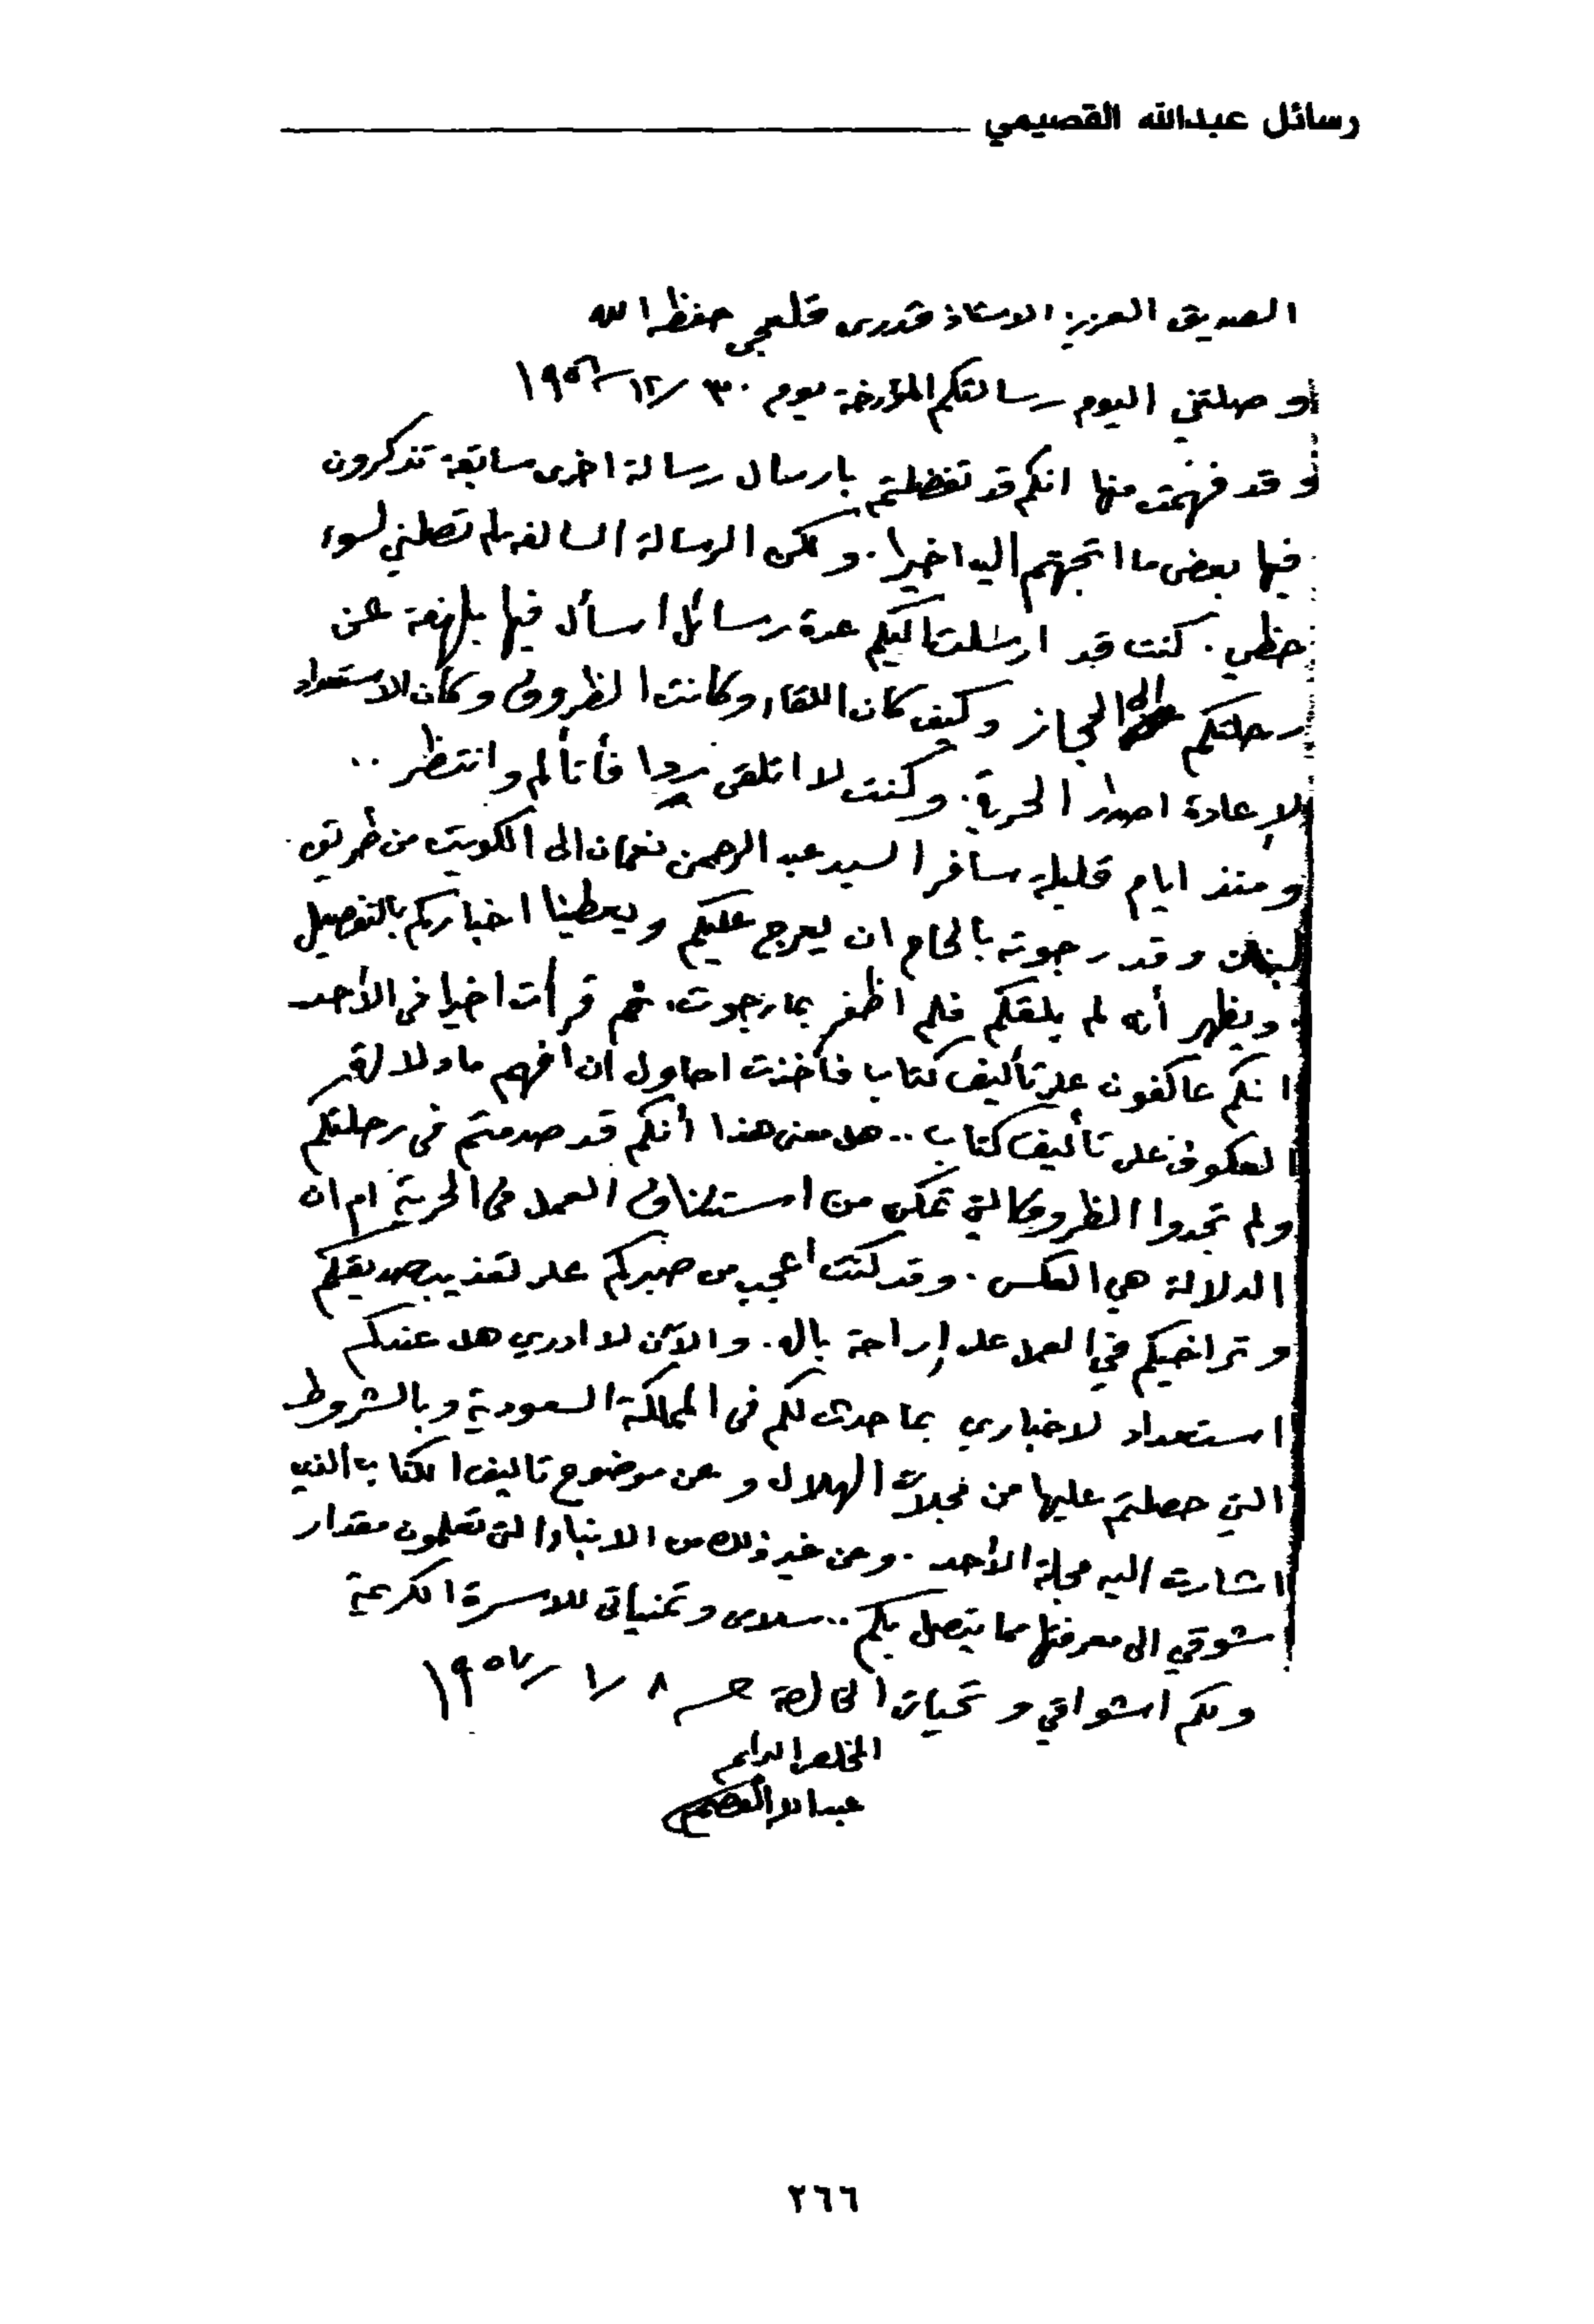 رسائل عبدالله القصيمي
الصديق العزيز الاستاذ قدرى قلعجي حفظه الله
وصلتني اليوم رسالتكم المؤرخة يوم ٣٠/١٢/١٩٥٦
وقد فهمت منها انكم قد تفضلتم بارسال رسالة اخرى سابقة تذكرون
فيها بعض ما اتجهتم اليه اخيرا. ولكن الرسالة السالفة لم تصلني لسوء
حظي. كنت قد ارسلت اليكم عدة رسائل اسأل فيها بلهفة عن
رحلتكم الى الحجاز وكيف كان اللقاء وكانت الظروف وكان الاستعداد
لإعادة اصدار الحرية. وكنت لا اتلقى ردا فأتألم وانتظر..
ومنذ ايام قليلة سافر السيد عبد الرحمن نعمان الى الكويت من طريق
لبنان وقد رجوته بالحاح ان يعرج عليكم ويعطينا اخباركم بالتفصيل
ويظهر أنه لم يلقكم فلم اظفر بما رجوت. ثم قرأت اخيرا فى الأحد
انكم عاكفون على تأليف كتاب فأخذت احاول ان افهم ما دلالة
العكوف على تأليف كتاب.. هل معنى هذا أنكم قد صدمتم فى رحلتكم
ولم تجدوا الظروف التي تمكن من استئناف العمل فى الحرية ام ان
الدلالة هي العكس. وقد كنت اعجب من صبركم على تعذيب صديقكم
وتراخيكم في العمل على إراحة باله. والآن لا ادري هل عندكم
استعداد لاخباري بما حدث لكم فى المملكة السعودية وبالشروط
التي حصلتم عليها من مجلات الهلال وعن موضوع تاليف الكتاب الذي
اشارت اليه مجلة الأحد. وعن غير ذلك من الانباء التى تعلمون مقدار
شوقي الى معرفتها مما يتصل بكم.. سلامى وتمنياتى للاسرة الكريمة
ولكم اشواقي وتحياتى الخالصة ٨/١/١٩٥٧
المخلص الدائم
عبدالله القصيمي
٢٦٦